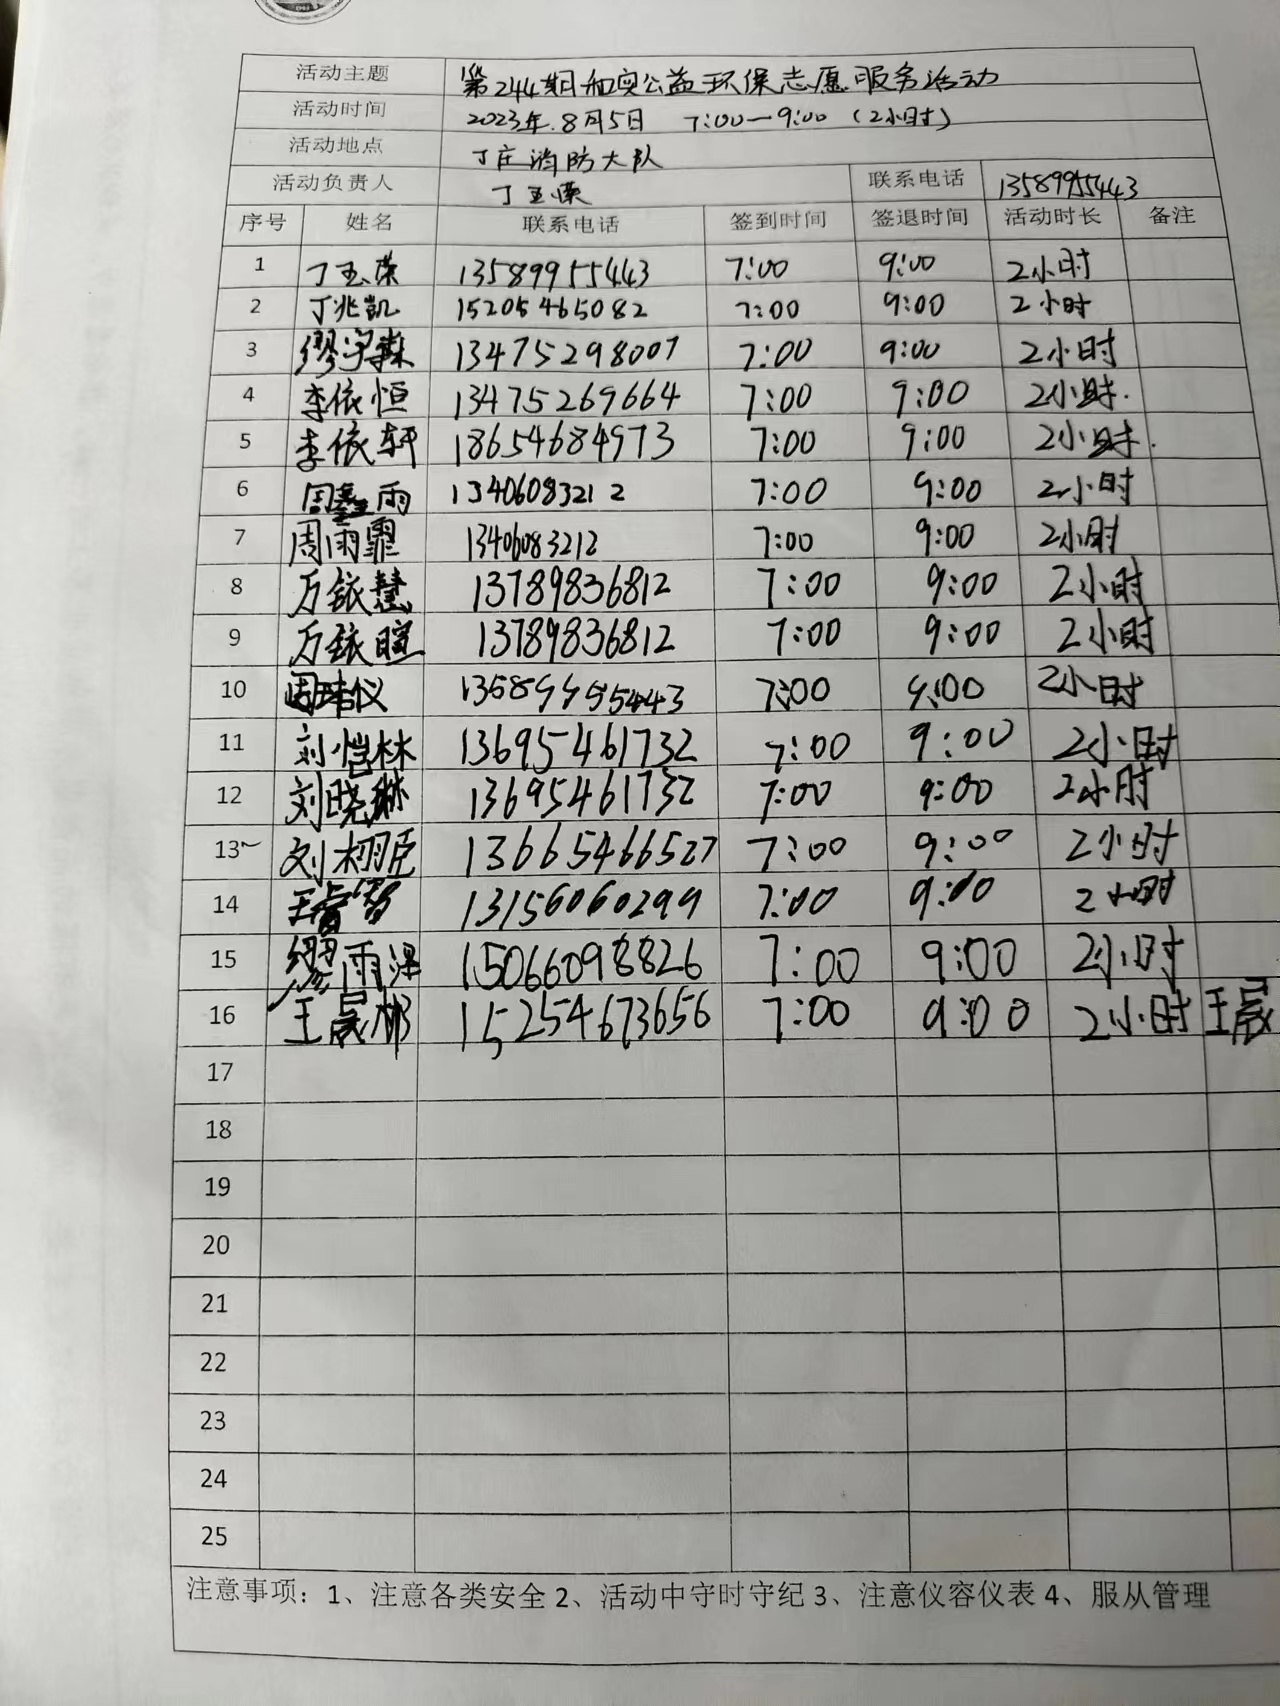 活动主题 第244期和奕公益环保志愿服务活动
活动时间 2023年.8月5日 7:00—9:00 (2小时)
活动地点 丁庄消防大队
活动负责人 丁玉荣 联系电话 13589955443
序号 姓名 联系电话 签到时间 签退时间 活动时长 备注
1 丁玉荣 13589955443 7:00 9:00 2小时
2 丁兆凯 15205465082 7:00 9:00 2小时
3 缪宇森 13475298007 7:00 9:00 2小时
4 李依恒 13475269664 7:00 9:00 2小时.
5 李依轩 18654684973 7:00 9:00 2小时.
6 周鑫雨 13406083212 7:00 9:00 2小时
7 周雨霏 13406083212 7:00 9:00 2小时
8 万铱慧 13789836812 7:00 9:00 2小时
9 万铱暄 13789836812 7:00 9:00 2小时
10 周玮仪 13589955443 7:00 9:00 2小时
11 刘恺林 13695461732 7:00 9:00 2小时
12 刘晓琳 13695461732 7:00 9:00 2小时
13 刘栩臣 13665466527 7:00 9:00 2小时
14 王睿智 13156060299 7:00 9:00 2小时
15 缪雨泽 15066098826 7:00 9:00 2小时
16 王晟郴 15254673656 7:00 9:00 2小时 王晟
17
18
19
20
21
22
23
24
25
注意事项：1、注意各类安全 2、活动中守时守纪 3、注意仪容仪表 4、服从管理